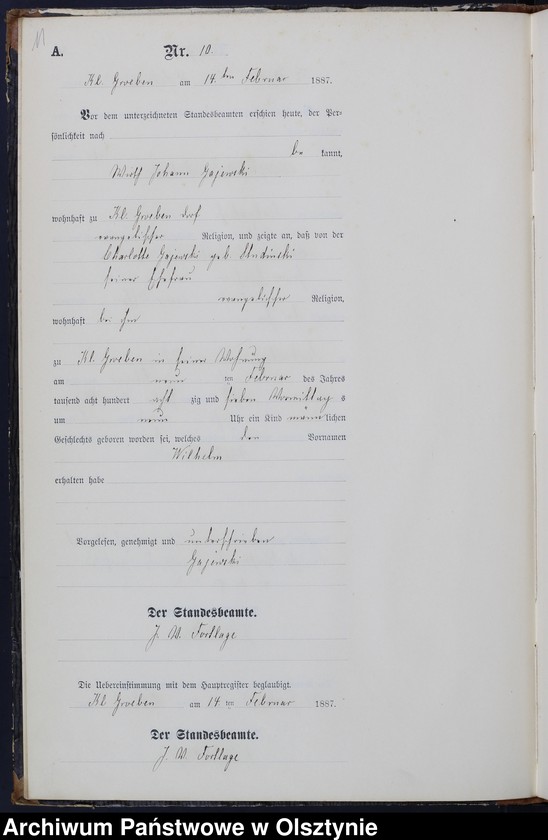 11
A. Nr. 10.
Kl. Groeben am 14. ten Februar 1887.
Vor dem unterzeichneten Standesbeamten erschien heute, der Per-
sönlichkeit nach
be kannt,
Wirth Johann Gajewski
wohnhaft zu Kl. Groeben Dorf.
evangelischer Religion, und zeigte an, daß von der
Charlotte Gajewski geb. Studinski
seiner Ehefrau
evangelischer Religion,
wohnhaft bei ihm
zu Kl. Groeben in seiner Wohnung
am neun ten Februar des Jahres
tausend acht hundert acht zig und sieben Vormittag s
um neun Uhr ein Kind männ lichen
Geschlechts geboren worden sei, welches den Vornamen
Wilhelm
erhalten habe
Vorgelesen, genehmigt und unterschrieben
Gajewski
Der Standesbeamte.
J. V. Fortlage
Die Uebereinstimmung mit dem Hauptregister beglaubigt.
Kl. Groeben am 14. ten Februar 1887.
Der Standesbeamte.
J. V. Fortlage
Archiwum Państwowe w Olsztynie